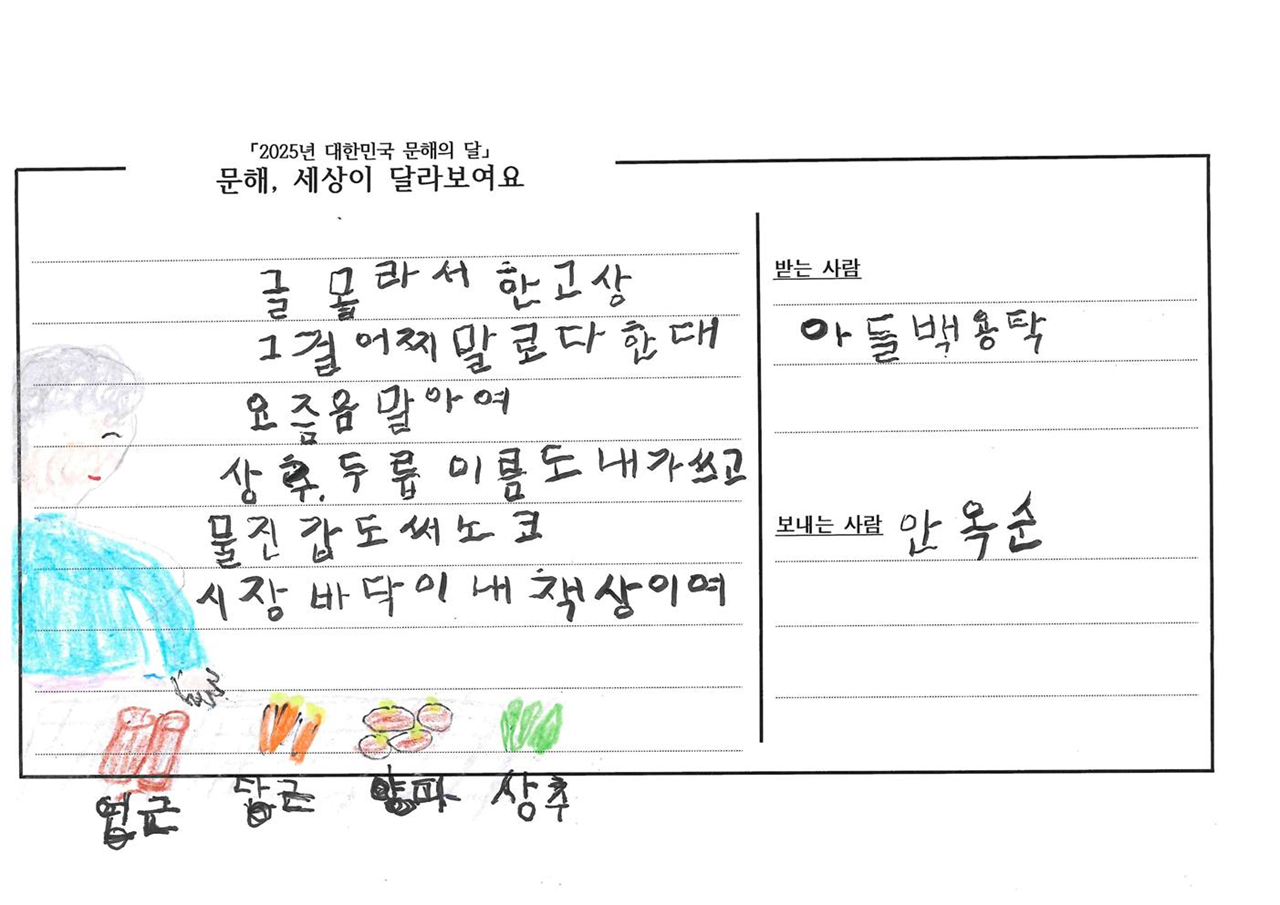 「2025년 대한민국 문해의 달」
문해, 세상이 달라보여요
글 몰라서 한 고상
그걸 어찌 말로 다 한대
요즘음 말아여
상추, 두릅 이름도 내가 쓰고
물진 갑도 써노코
시장 바닥이 내 책상이여
연근 당근 양파 상추
받는 사람
아들 백용탁
보내는 사람 안옥순